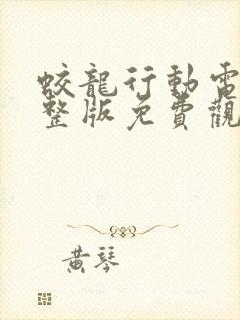 蛟龍行動電
整版免費觀
黃琴